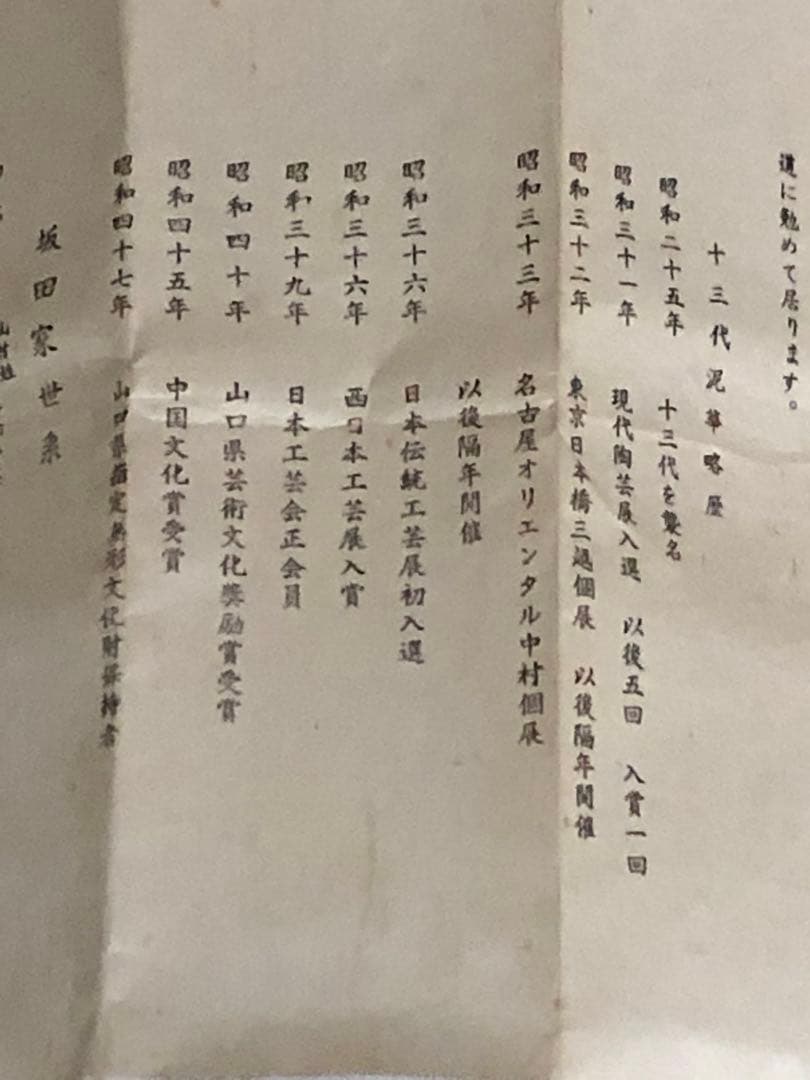 道に勉めて居ります。
十三代泥華略歴
昭和二十五年 十三代を襲名
昭和三十一年 現代陶芸展入選 以後五回 入賞一回
昭和三十二年 東京日本橋三越個展 以後隔年開催
昭和三十三年 名古屋オリエンタル中村個展
以後隔年開催
昭和三十六年 日本伝統工芸展初入選
昭和三十六年 西日本工芸展入賞
昭和三十九年 日本工芸会正会員
昭和四十年 山口県芸術文化奨励賞受賞
昭和四十五年 中国文化賞受賞
昭和四十七年 山口県指定無形文化財保持者
坂田家世系